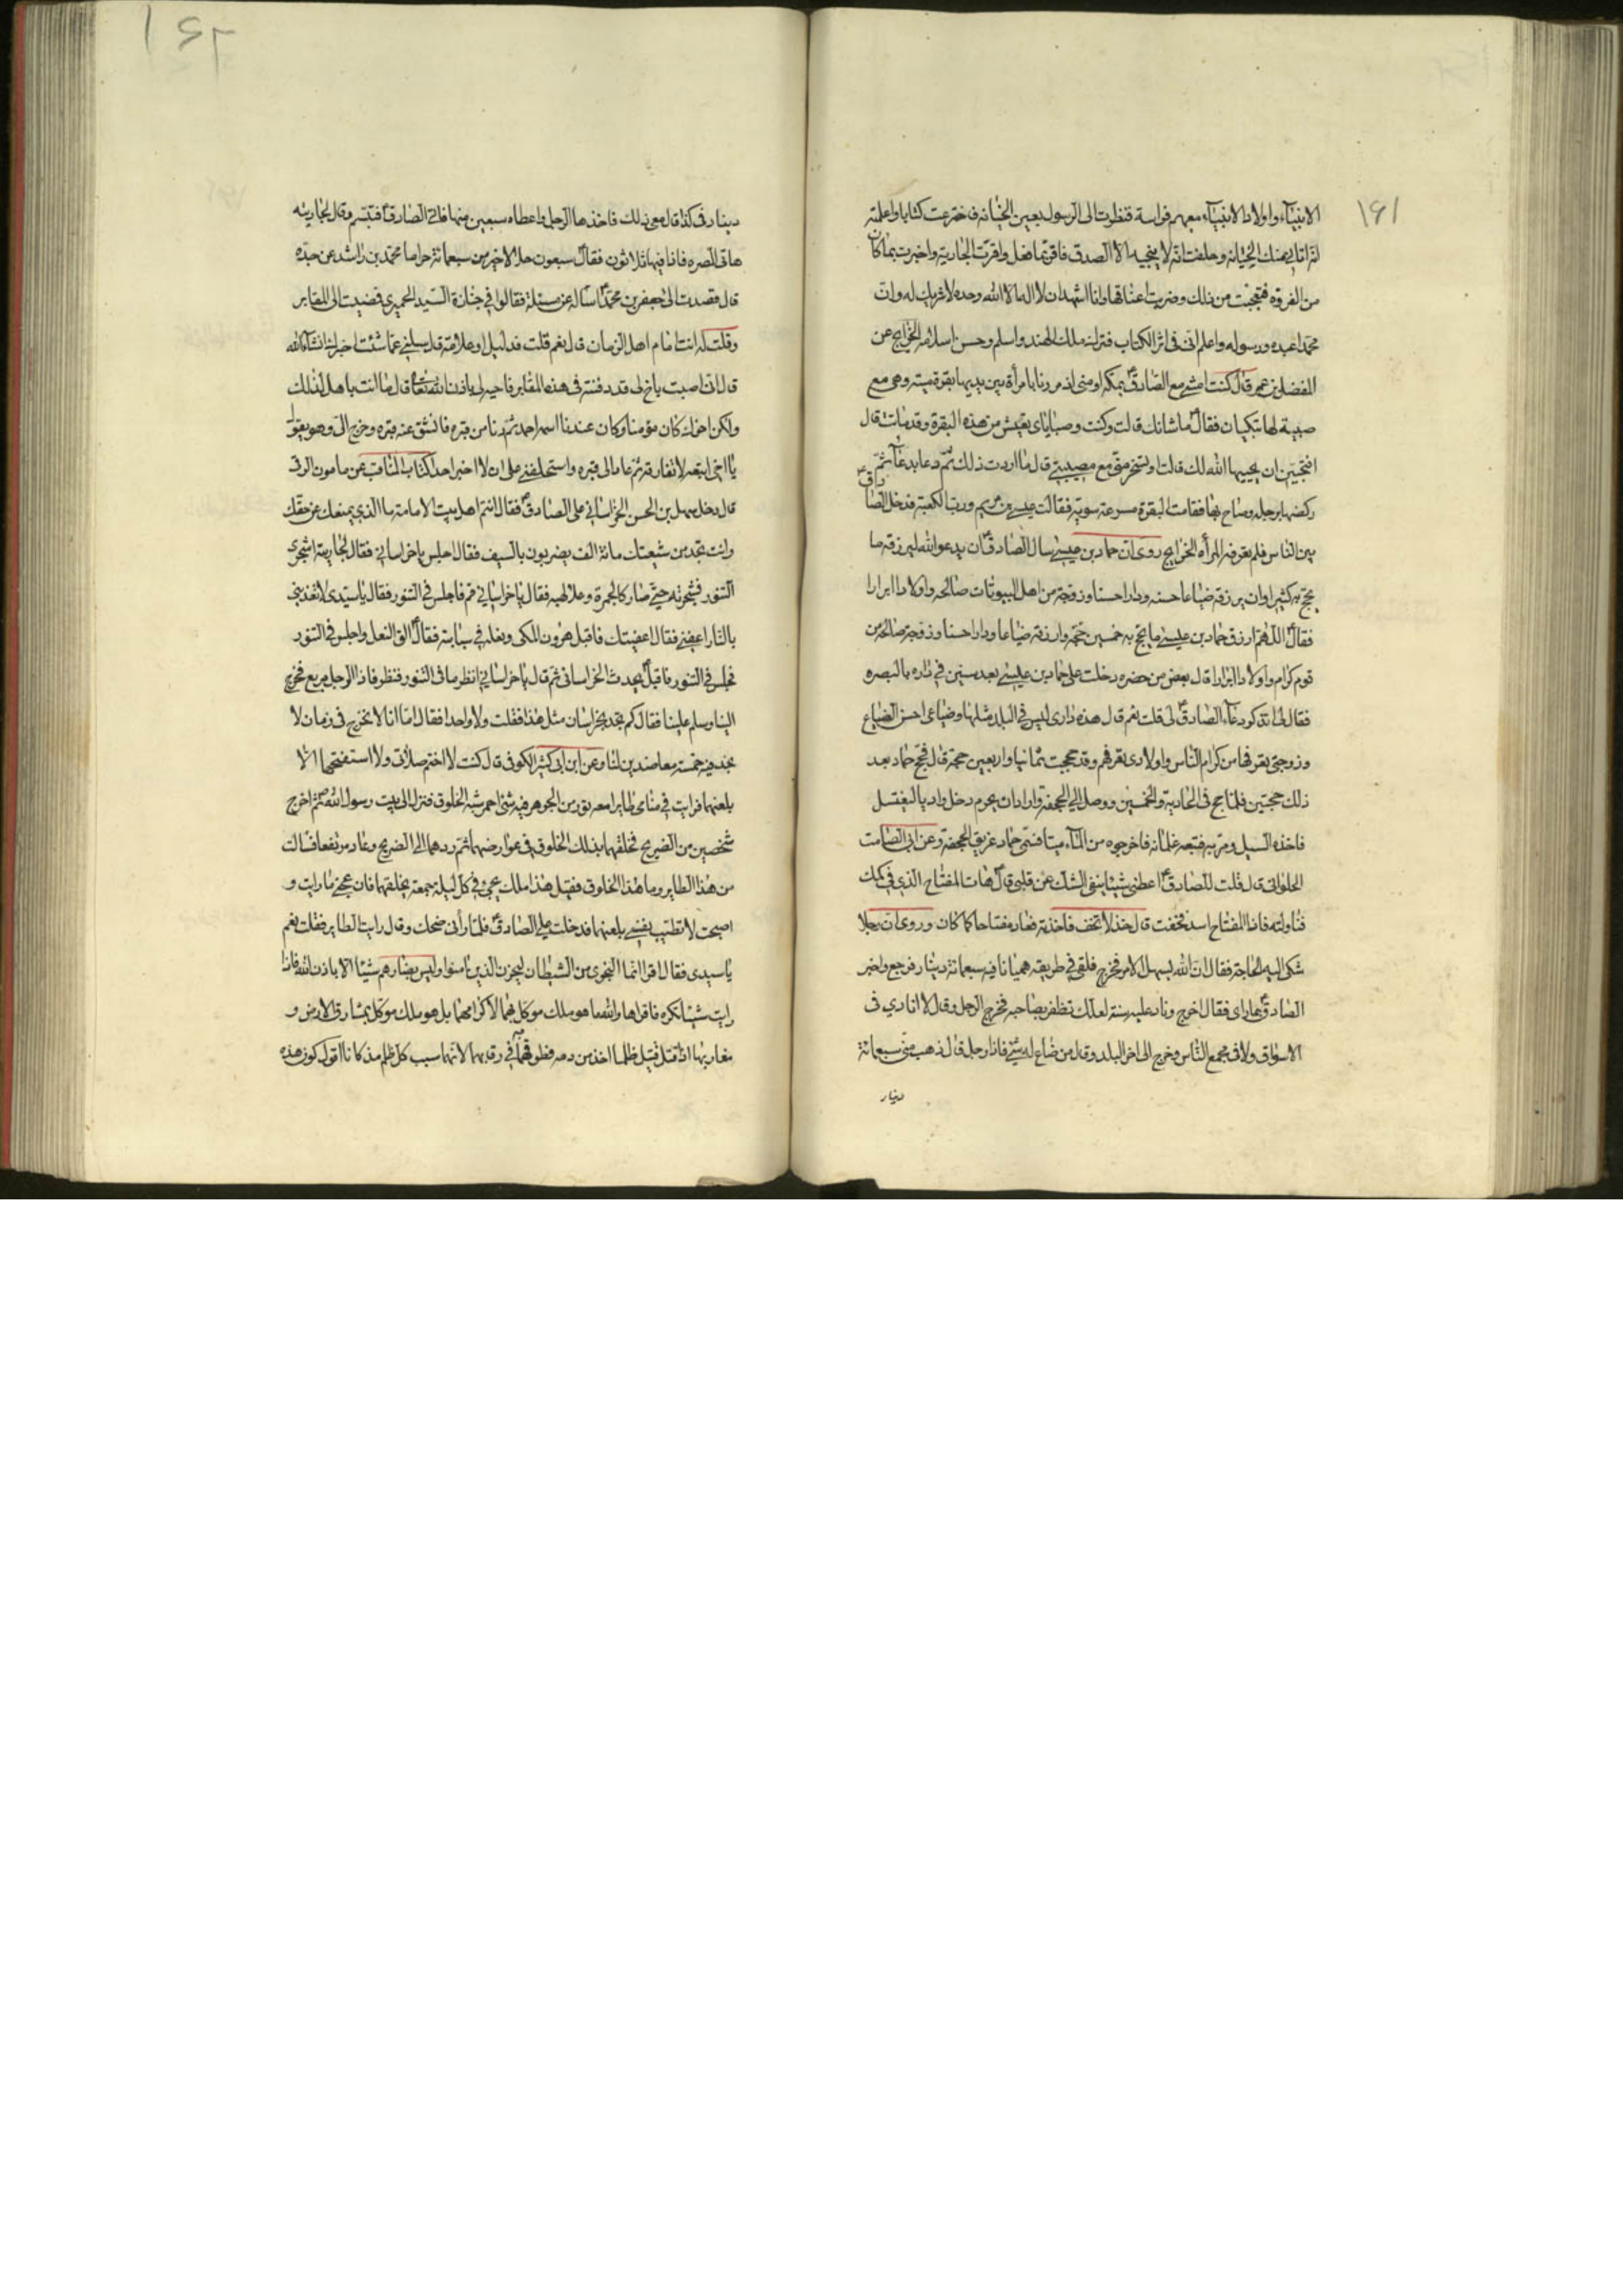 ١٦١
الانبیآء واولاد الانبیآء معهم فراسة فنظرت الى الرسول بعین الخیانه فاخترعت کتابا واعلمته
انه اتانی منک الخیانه وحلفت انه لا ینجیه الا الصدق فاقر بما فعل واقرت الجاریة واخبرت بما کان
من الفروة فتعجبت من ذلک وضربت اعناقها وانا اشهد ان لا اله الا الله وحده لا شریک له وان
محمدا عبده ورسوله واعلم انی فی اثر الکتاب فترک ملک الهند واسلم وحسن اسلامه الخرایج عن
المفضل بن عمر قال کنت امشی مع الصادق بمکه او منى اذ مررنا بامرأة بین یدیها بقرة میته وهی مع
صبیة لها تبکیان فقال ما شانک قالت وکنت وصبایای نعیش من هذه البقرة وقد ماتت قال
افتحبین ان یحییها الله لک قالت اوتسخر منی مع مصیبتی قال ما اردت ذلک ثم دعا بدعآء ثم
رکضها برجله وصاح بها فقامت البقرة مسرعة سویة فقالت عیسى بن مریم ورب الکعبة فدخل الصادق
بین الناس فلم تعرفه المرأه الخرایج روی ان حماد بن عیسى سال الصادق ان یدعو الله لیرزقه ما
یحج به کثیرا وان یرزقه ضیاعا حسنه ودارا حسنا وزوجة من اهل البیوتات صالحه واولادا ابرارا
فقال اللهم ارزق حماد بن عیسى ما یحج به خمسین حجة وارزقه ضیاعا ودارا حسنا وزوجة صالحة من
قوم کرام واولادا ابرارا قال بعض من حضره دخلت على حماد بن عیسى بعد سنین فی داره بالبصره
فقال لی اتذکر دعآء الصادق لی قلت نعم قال هذه داری لیس فی البلد مثلها وضیاعی احسن الضیاع
وزوجتی تعرفها من کرام الناس واولادی تعرفهم وقد حججت ثمانیا واربعین حجة قال فحج حماد بعد
ذلک حجتین فلما حج فی الحادیة والخمسین ووصل الى الجحفة واراد ان یحرم دخل وادیا لیغتسل
فاخذه السیل ومر به فتبعه غلمانه فاخرجوه من المآء میتا فسمی حماد غریق الجحفة وعن ابی الصامت
الحلوانی قال قلت للصادق اعطنی شیئا ینفی الشک عن قلبی قال هات المفتاح الذی فی کمک
فناولته فاذا المفتاح اسد فخفت قال خذ لا تخف فاخذته فصار مفتاحا کما کان وروی ان رجلا
شکى الیه الحاجة فقال ان الله یسهل الامر فخرج فلقی فی طریقه همیانا فیه سبعمائة دینار فرجع واخبر
الصادق بما رای فقال اخرج وناد علیه سنة لعلک تظفر بصاحبه فخرج الرجل وقال لا انادی فی
الاسواق ولا فی مجمع الناس وخرج الى اخر البلد وقال من ضاع له شیء فاذا رجل قال ذهب منی سبعمائة
دینار
١٦٢
دینار فی کذا قال معی ذلک فاخذها الرجل واعطاه سبعین منها فاتى الصادق فتبسم وقال لجاریته
هاتی الصره فاذا فیها ثلاثون فقال سبعون حلالا خیر من سبعمائة حراما محمد بن راشد عن جده
قال قصدت الى جعفر بن محمد اساله عن مسئلة فقالوا فی جنازة السید الحمیری فمضیت الى المقابر
وقلت له انت امام اهل الزمان قال نعم قلت فدلیل او علامة قال سلنی عما شئت اخبرک انشآء الله
قال انی اصبت باخ لی قد دفنته فی هذه المقابر فاحیه لی باذن الله تعالى قال ما انت باهل لذلک
ولکن اخوک کان مؤمنا وکان عندنا اسمه احمد ثم دنا من قبره فانشق عنه قبره وخرج الی وهو یقول
یا اخی اتبعه لا تفارقه ثم عاد الى قبره واستحلفنی على ان لا اخبر احدا کتاب المناقب عن مامون الرقی
قال دخل سهل بن الحسن الخراسانی على الصادق فقال انتم اهل بیت الامامة ما الذی یمنعک عن حقک
وانت تجد من شیعتک مائة الف یضربون بالسیف فقال اجلس یا خراسانی فقال لجاریة اسجری
التنور فسجرته حتى صار کالجمرة وعلا لهبه فقال یا خراسانی قم فاجلس فی التنور فقال یا سیدی لا تعذبنی
بالنار اعفنی فقال اعفیتک فاقبل هرون المکی ونعله فی سبابته فقال الق النعل واجلس فی التنور
فجلس فی التنور فاقبل یحدث الخراسانی ثم قال یا خراسانی انظر ما فی التنور فنظر فاذا الرجل متربع فخرج
الینا وسلم علینا فقال کم تجد بخراسان مثل هذا فقلت ولا واحدا فقال اما انا لا نخرج فی زمان لا
نجد فیه خمسة معاضدین لنا وعن ابن ابی کثیر الکوفی قال کنت لا اختم صلاتی ولا استفتحها الا
بلعنهما فرایت فی منامی طایرا معه تور من الجوهر فیه شیئ احمر شبه الخلوق فنزل الى بیت رسول الله ثم اخرج
شخصین من الضریح فخلقهما بذلک الخلوق فی عوارضهما ثم ردهما الى الضریح وعاد مرتفعا فسالت
من هذا الطایر وما هذا الخلوق فقیل هذا ملک یجیئ فی کل لیلة جمعة یخلقهما فازعجنی ما رایت و
اصبحت لا تطیب نفسی بلعنهما فدخلت على الصادق فلما رآنی ضحک وقال رایت الطایر فقلت نعم
یا سیدی فقال اقرا انما النجوى من الشیطان لیحزن الذین آمنوا ولیس بضارهم شیئا الا باذن الله فاذا
رایت شیئا تکره فاقراها والله ما هو ملک موکل بهما لاکرامهما بل هو ملک موکل بمشارق الارض و
مغاربها اذا قتل قتیل ظلما اخذ من دمه فطوقهما به فی رقابهما لانهما سبب کل ظلم مذ کانا اقول کون هذه